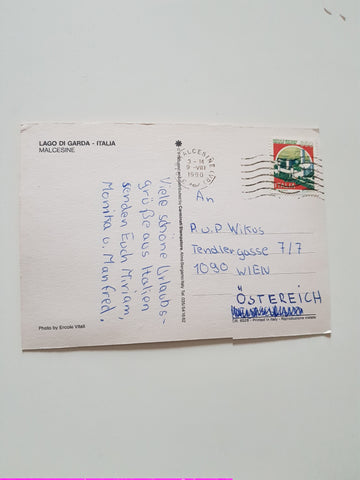 LAGO DI GARDA - ITALIA
MALCESINE
Viele schöne Urlaubs-
grüße aus Italien
senden Euch Miriam,
Monika u. Manfred.
Photo by Ercole Vitali
MALCESINE
9-VIII
1990
ITALIA
An
P. u. P. Wikus
Tendlergasse 7/7
1090 WIEN
ÖSTEREICH
Printed in Italy - Riproduzione vietata